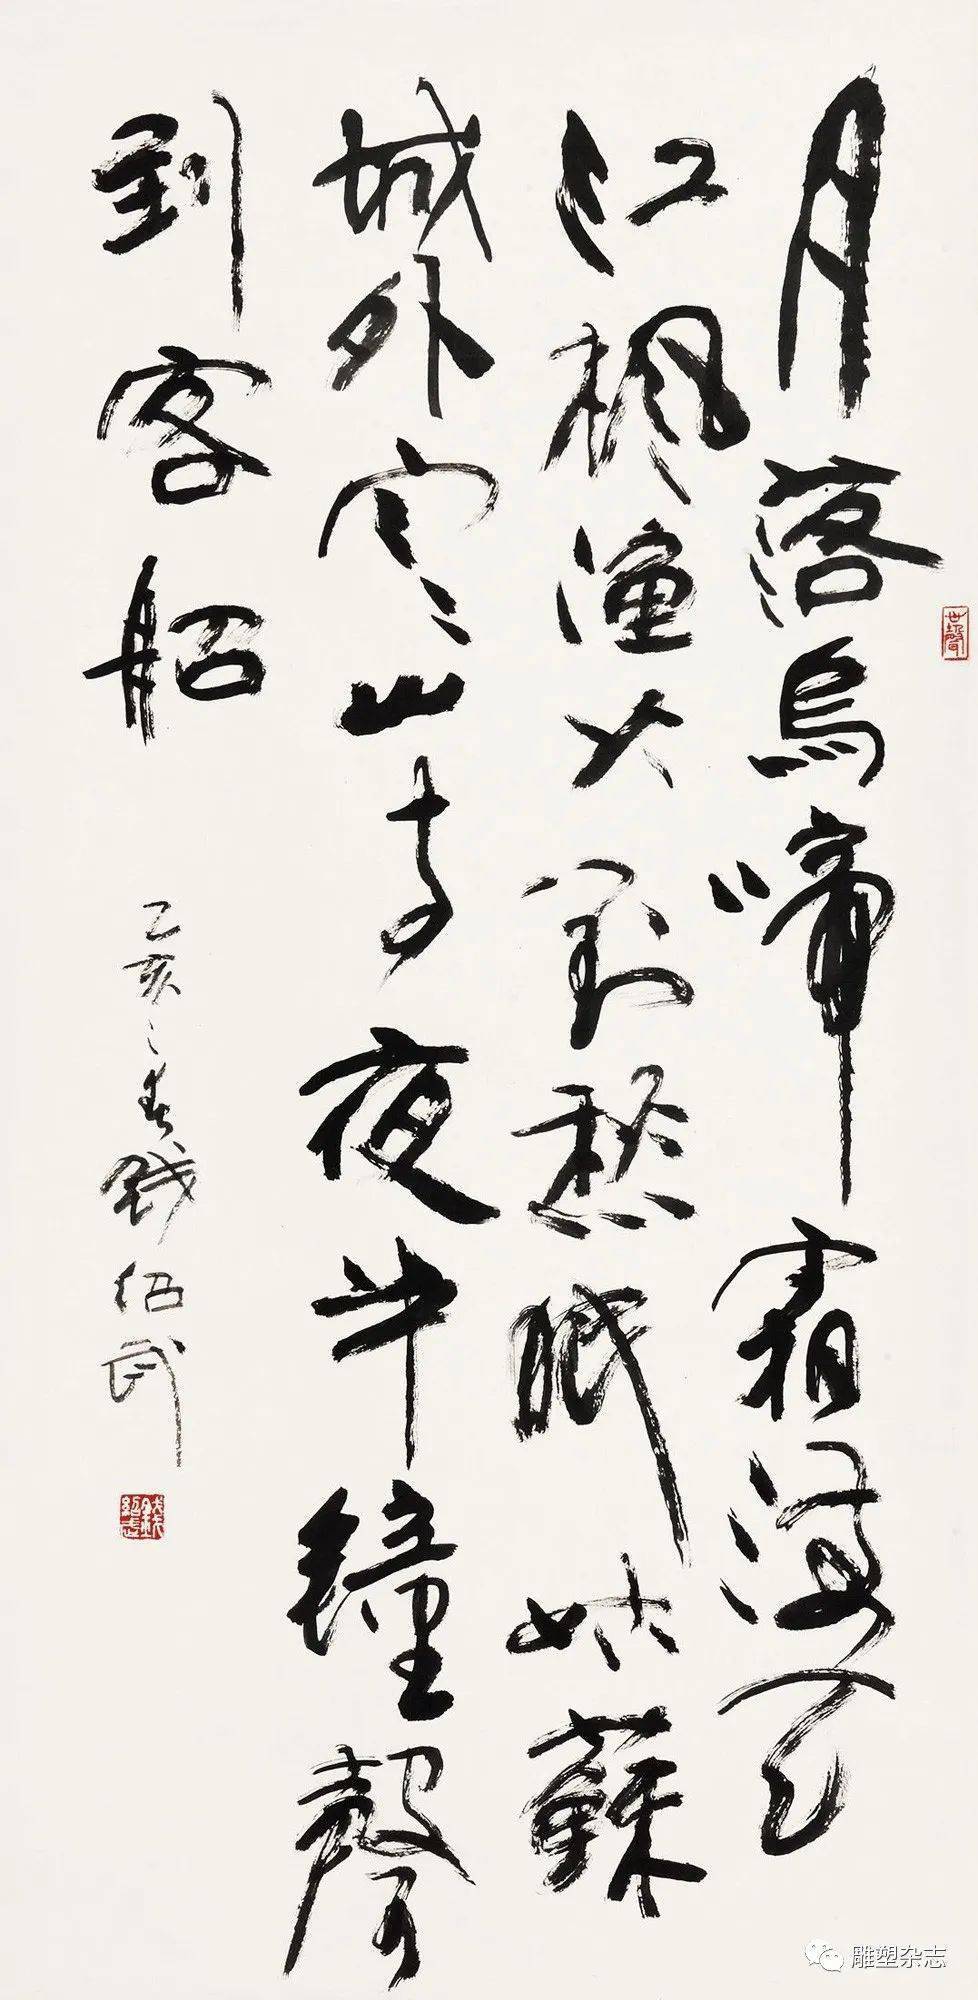 月落烏啼霜滿天
江楓漁火對愁眠姑蘇
城外寒山寺夜半鐘聲
到客船
乙亥之春錢紹武
錢紹武
雕塑杂志